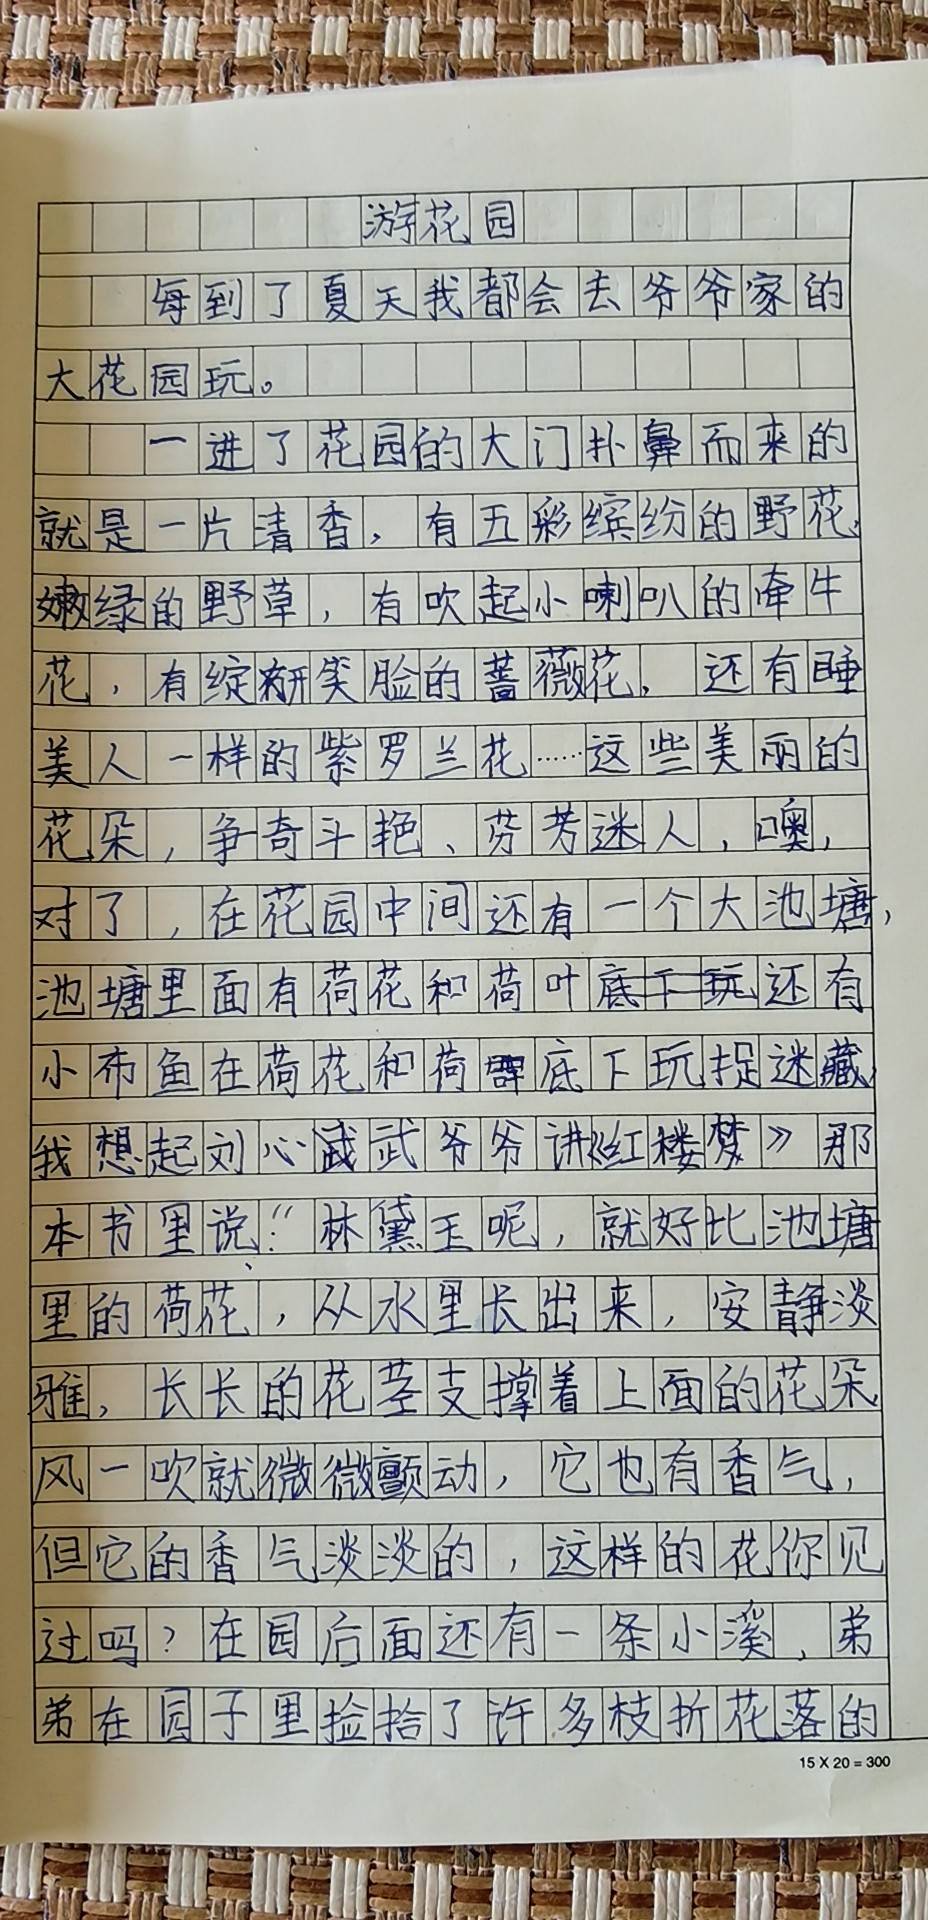 游花园
每到了夏天我都会去爷爷家的
大花园玩。
一进了花园的大门扑鼻而来的
就是一片清香，有五彩缤纷的野花，
嫩绿的野草，有吹起小喇叭的牵牛
花，有绽开笑脸的蔷薇花，还有睡
美人一样的紫罗兰花……这些美丽的
花朵，争奇斗艳、芬芳迷人，噢，
对了，在花园中间还有一个大池塘，
池塘里面有荷花和荷叶底下玩还有
小布鱼在荷花和荷底下玩捉迷藏，
我想起刘心武爷爷讲《红楼梦》那
本书里说：“林黛玉呢，就好比池塘
里的荷花，从水里长出来，安静淡
雅，长长的花茎支撑着上面的花朵，
风一吹就微微颤动，它也有香气，
但它的香气淡淡的，这样的花你见
过吗？在园后面还有一条小溪，弟
弟在园子里捡拾了许多枝折花落的
15 X 20 = 300